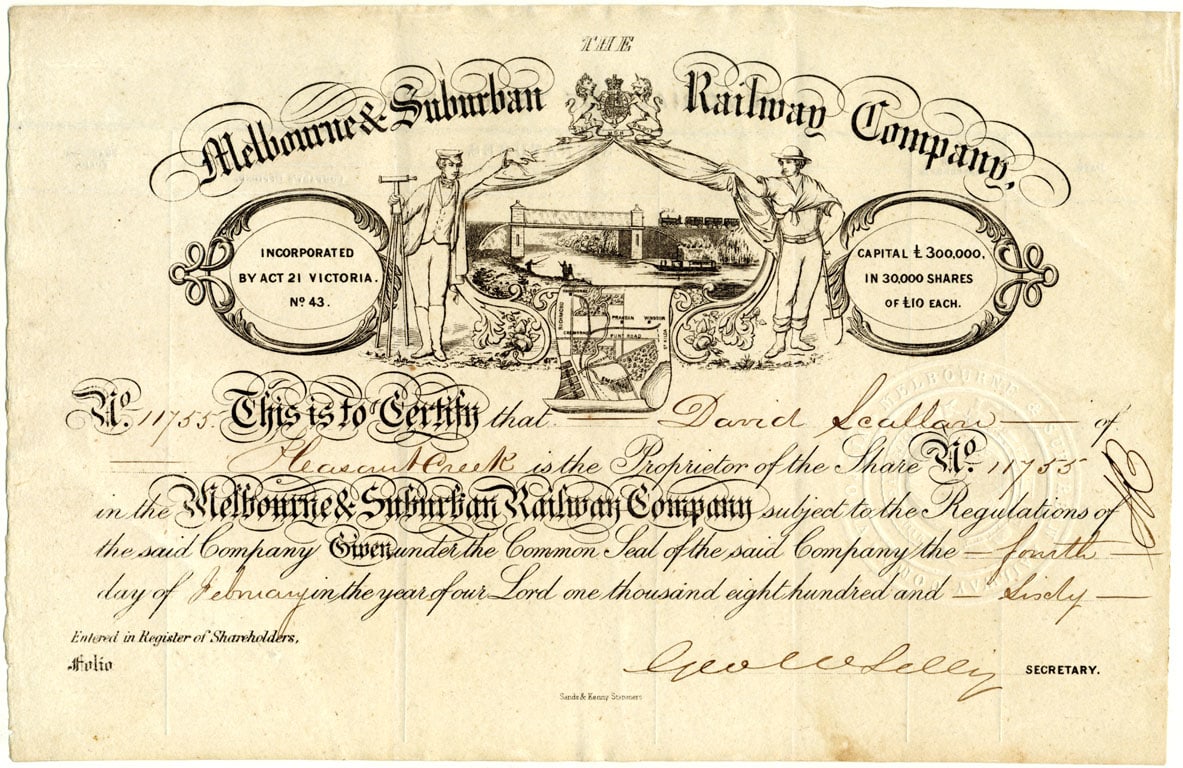 THE
Melbourne & Suburban Railway Company,
INCORPORATED
BY ACT 21 VICTORIA.
No 43.
CAPITAL £300,000,
IN 30,000 SHARES
OF £10 EACH.
PRAHRAN WINDSOR
PUNT ROAD
No. 11755 This is to Certify that David Scullan of
Pleasant Creek is the Proprietor of the Share No. 11755
in the Melbourne & Suburban Railway Company subject to the Regulations of
the said Company Given under the Common Seal of the said Company the fourth
day of February in the year of our Lord one thousand eight hundred and Sixty
Entered in Register of Shareholders,
Folio
SECRETARY.
Sands & Kenny Stationers
MELBOURNE